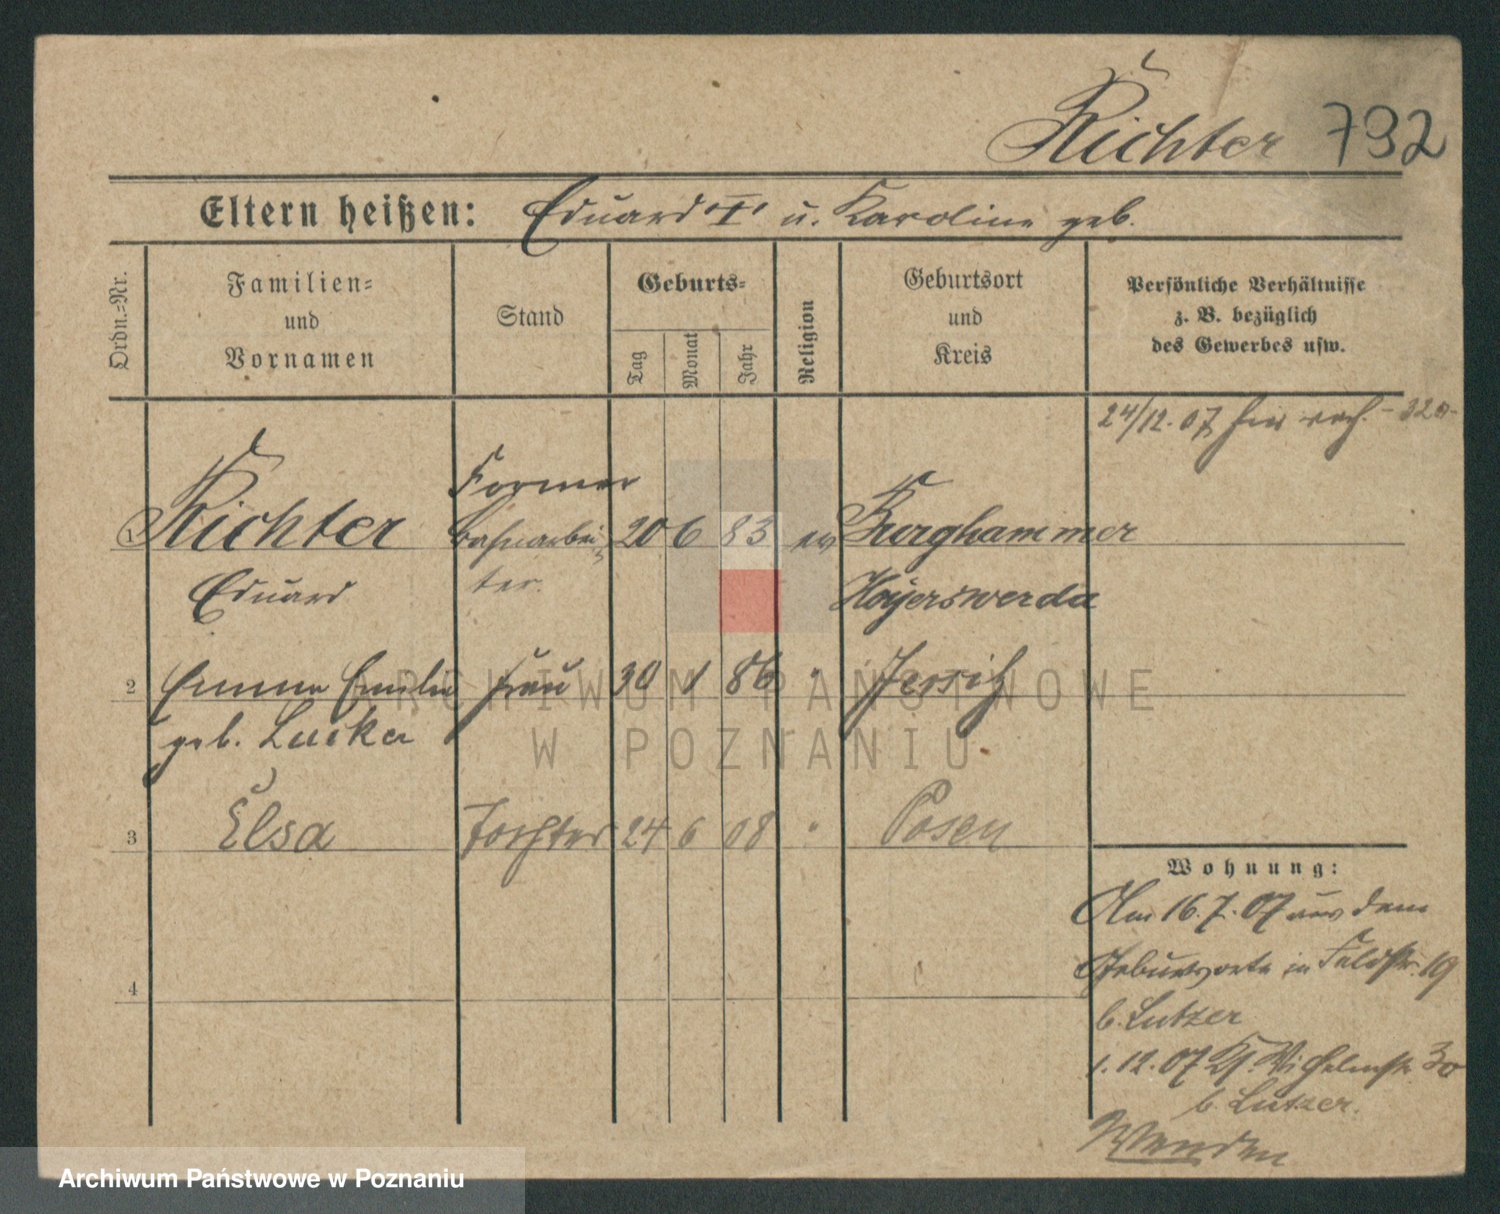 Richter 792
Eltern heißen: Eduard "I" u. Karoline geb.
Ordn.=Nr.
Familien=
und
Vornamen
Stand
Geburts=
Tag
Monat
Jahr
Religion
Geburtsort
und
Kreis
Persönliche Verhältnisse
z. B. bezüglich
des Gewerbes usw.
24/12. 07
Former
1 Richter Bahnarbei 20 6 83 ev Burghammer
Eduard ter. Hoyerswerda
2 Emma Emilie Frau 30 1 86 " Jersitz
geb.
3 Elsa Tochter 24 6 08 " Posen
4
Wohnung:
Am 16.7.07 aus dem
Geburtsorte in Feldstr. 19
b. Lutzer
1.12.07 Kl. Wilhelmstr. 30
b. Lutzer.
Wenden
ARCHIWUM PAŃSTWOWE
W POZNANIU
Archiwum Państwowe w Poznaniu